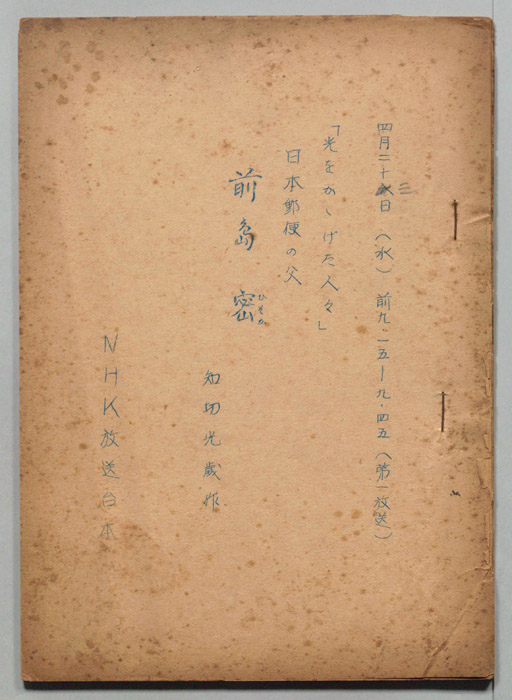 四月二十三日(水) 前九・一五ー九・四五(第一放送)
「光をかゝげた人々」
日本郵便の父
前島密
ひそか
知切光歳作
NHK放送台本